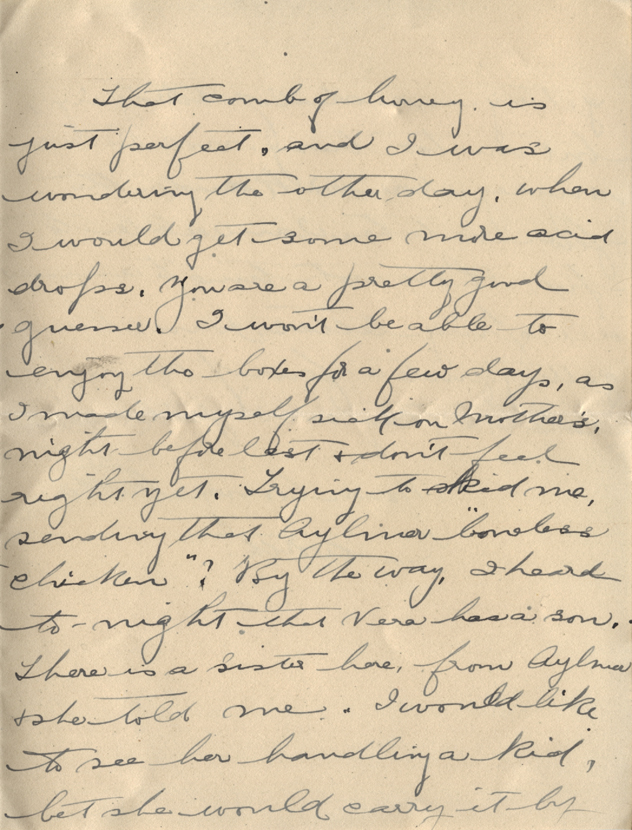 That comb of honey is
just perfect, and I was
wondering the other day, when
I would get some more acid
drops. You are a pretty good
guesser. I won't be able to
enjoy the boxes for a few days, as
I made myself sick on Mother's,
night before last & don't feel
right yet. Trying to kid me,
sending that Aylmer "boneless
chicken"? By the way, I heard
to-night that Vera has a son.
There is a sister here, from Aylmer
& she told me. I would like
to see her handling a kid,
bet she would carry it by